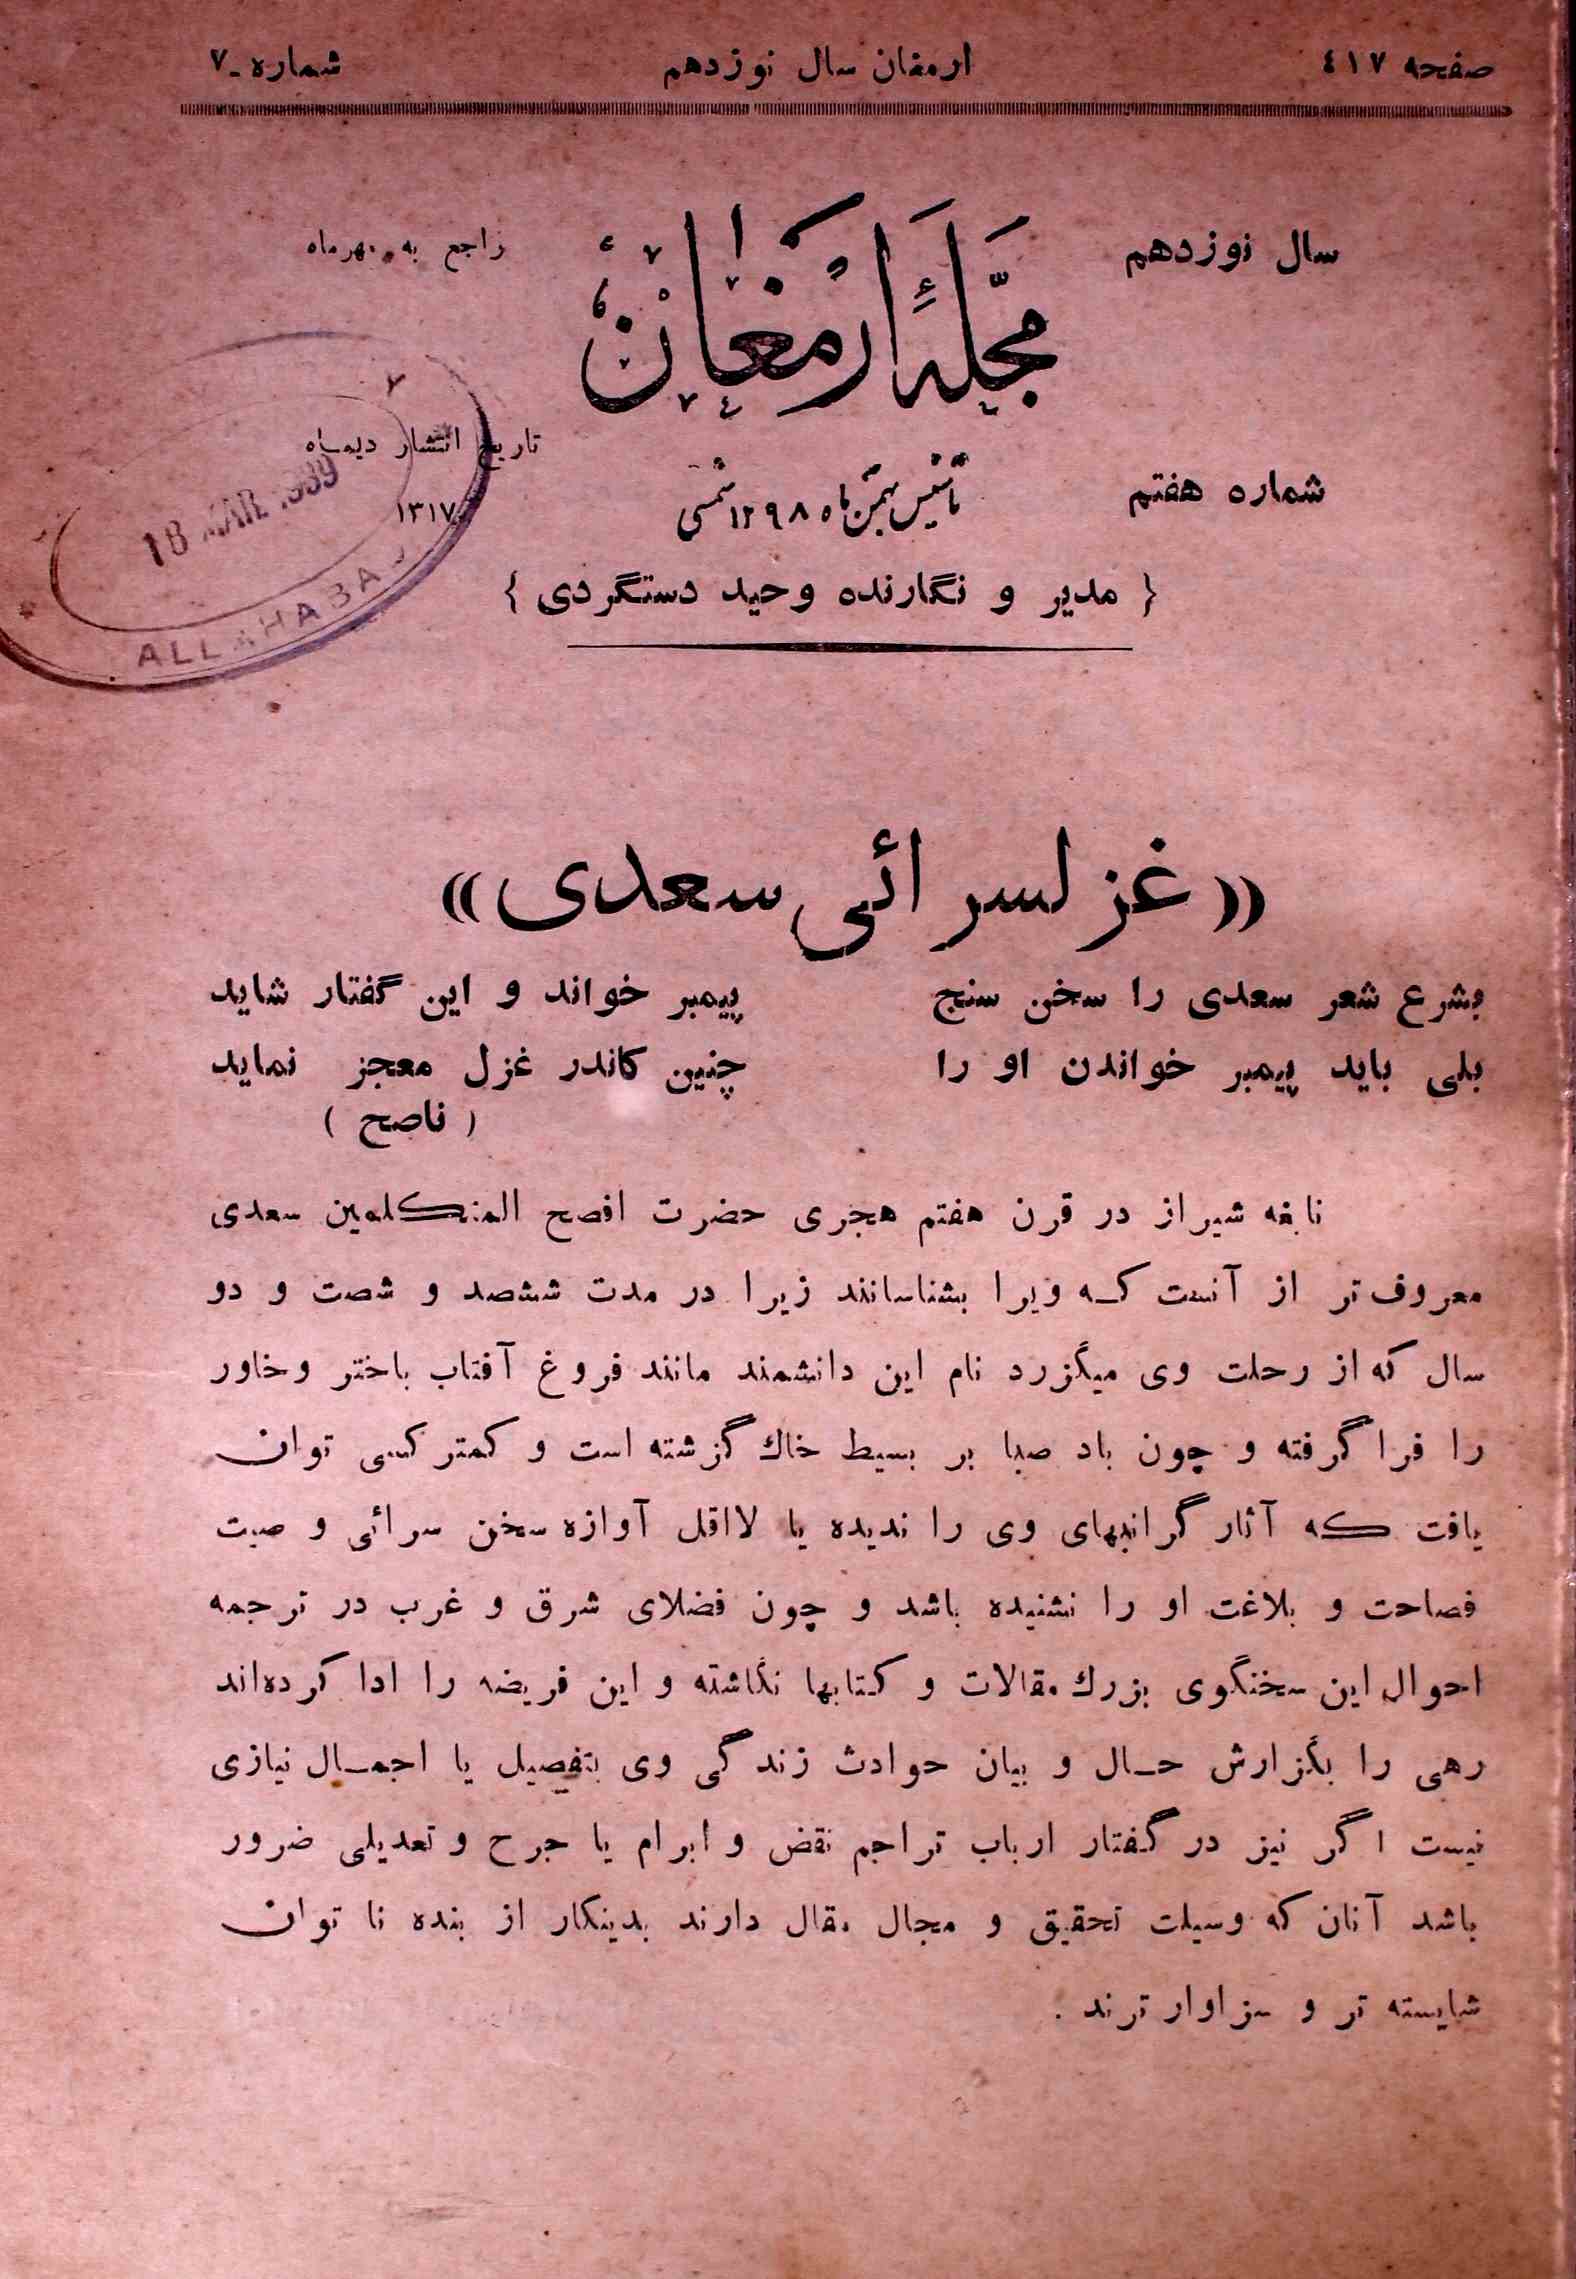 صفحه ٤١٧ ارمغان سال نوزدهم شماره ـ ٧
سال نوزدهم مجلهٔ ارمغان راجع به مهرماه
تاریخ انتشار دیماه
شماره هفتم تأسیس بهمن ماه ١٢٩٨ شمسی ١٣١٧
18 MAR 1939
ALLAHABAD
{ مدیر و نگارنده وحید دستگردی }
« غزلسرائی سعدی »
بشرع شعر سعدی را سخن سنج پیمبر خواند و این گفتار شاید
بلی باید پیمبر خواندن او را چنین کاندر غزل معجز نماید
( ناصح )
نابغه شیراز در قرن هفتم هجری حضرت افصح المتکلمین سعدی
معروف تر از آنست که ویرا بشناسانند زیرا در مدت ششصد و شصت و دو
سال که از رحلت وی میگزرد نام این دانشمند مانند فروغ آفتاب باختر و خاور
را فرا گرفته و چون باد صبا بر بسیط خاك گزشته است و کمتر کسی توان
یافت که آثار گرانبهای وی را ندیده یا لااقل آوازه سخن سرائی و صیت
فصاحت و بلاغت او را نشنیده باشد و چون فضلای شرق و غرب در ترجمه
احوال این سخنگوی بزرك مقالات و کتابها نگاشته و این فریضه را ادا کرده‌اند
رهی را بگزارش حال و بیان حوادث زندگی وی بتفصیل یا اجمال نیازی
نیست اگر نیز در گفتار ارباب تراجم نقض و ابرام یا جرح و تعدیلی ضرور
باشد آنان که وسیلت تحقیق و مجال مقال دارند بدینکار از بنده نا توان
شایسته تر و سزاوار ترند .